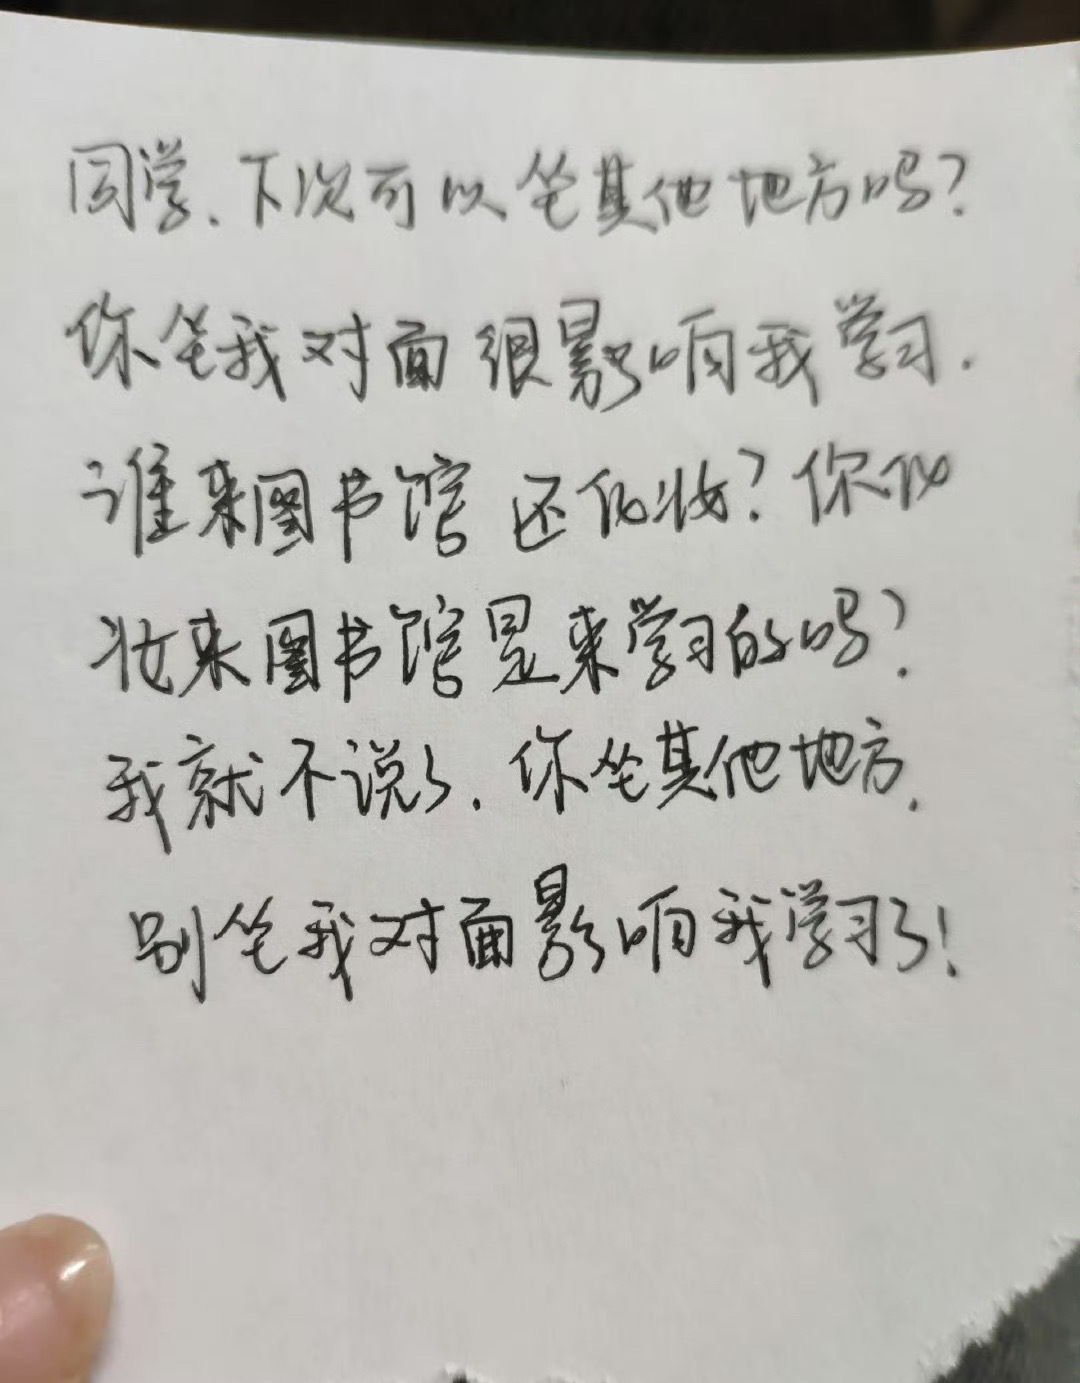 同学.下次可以坐其他地方吗?
你坐我对面很影响我学习.
谁来图书馆还化妆?你化
妆来图书馆是来学习的吗?
我就不说了.你坐其他地方.
别坐我对面影响我学习了!